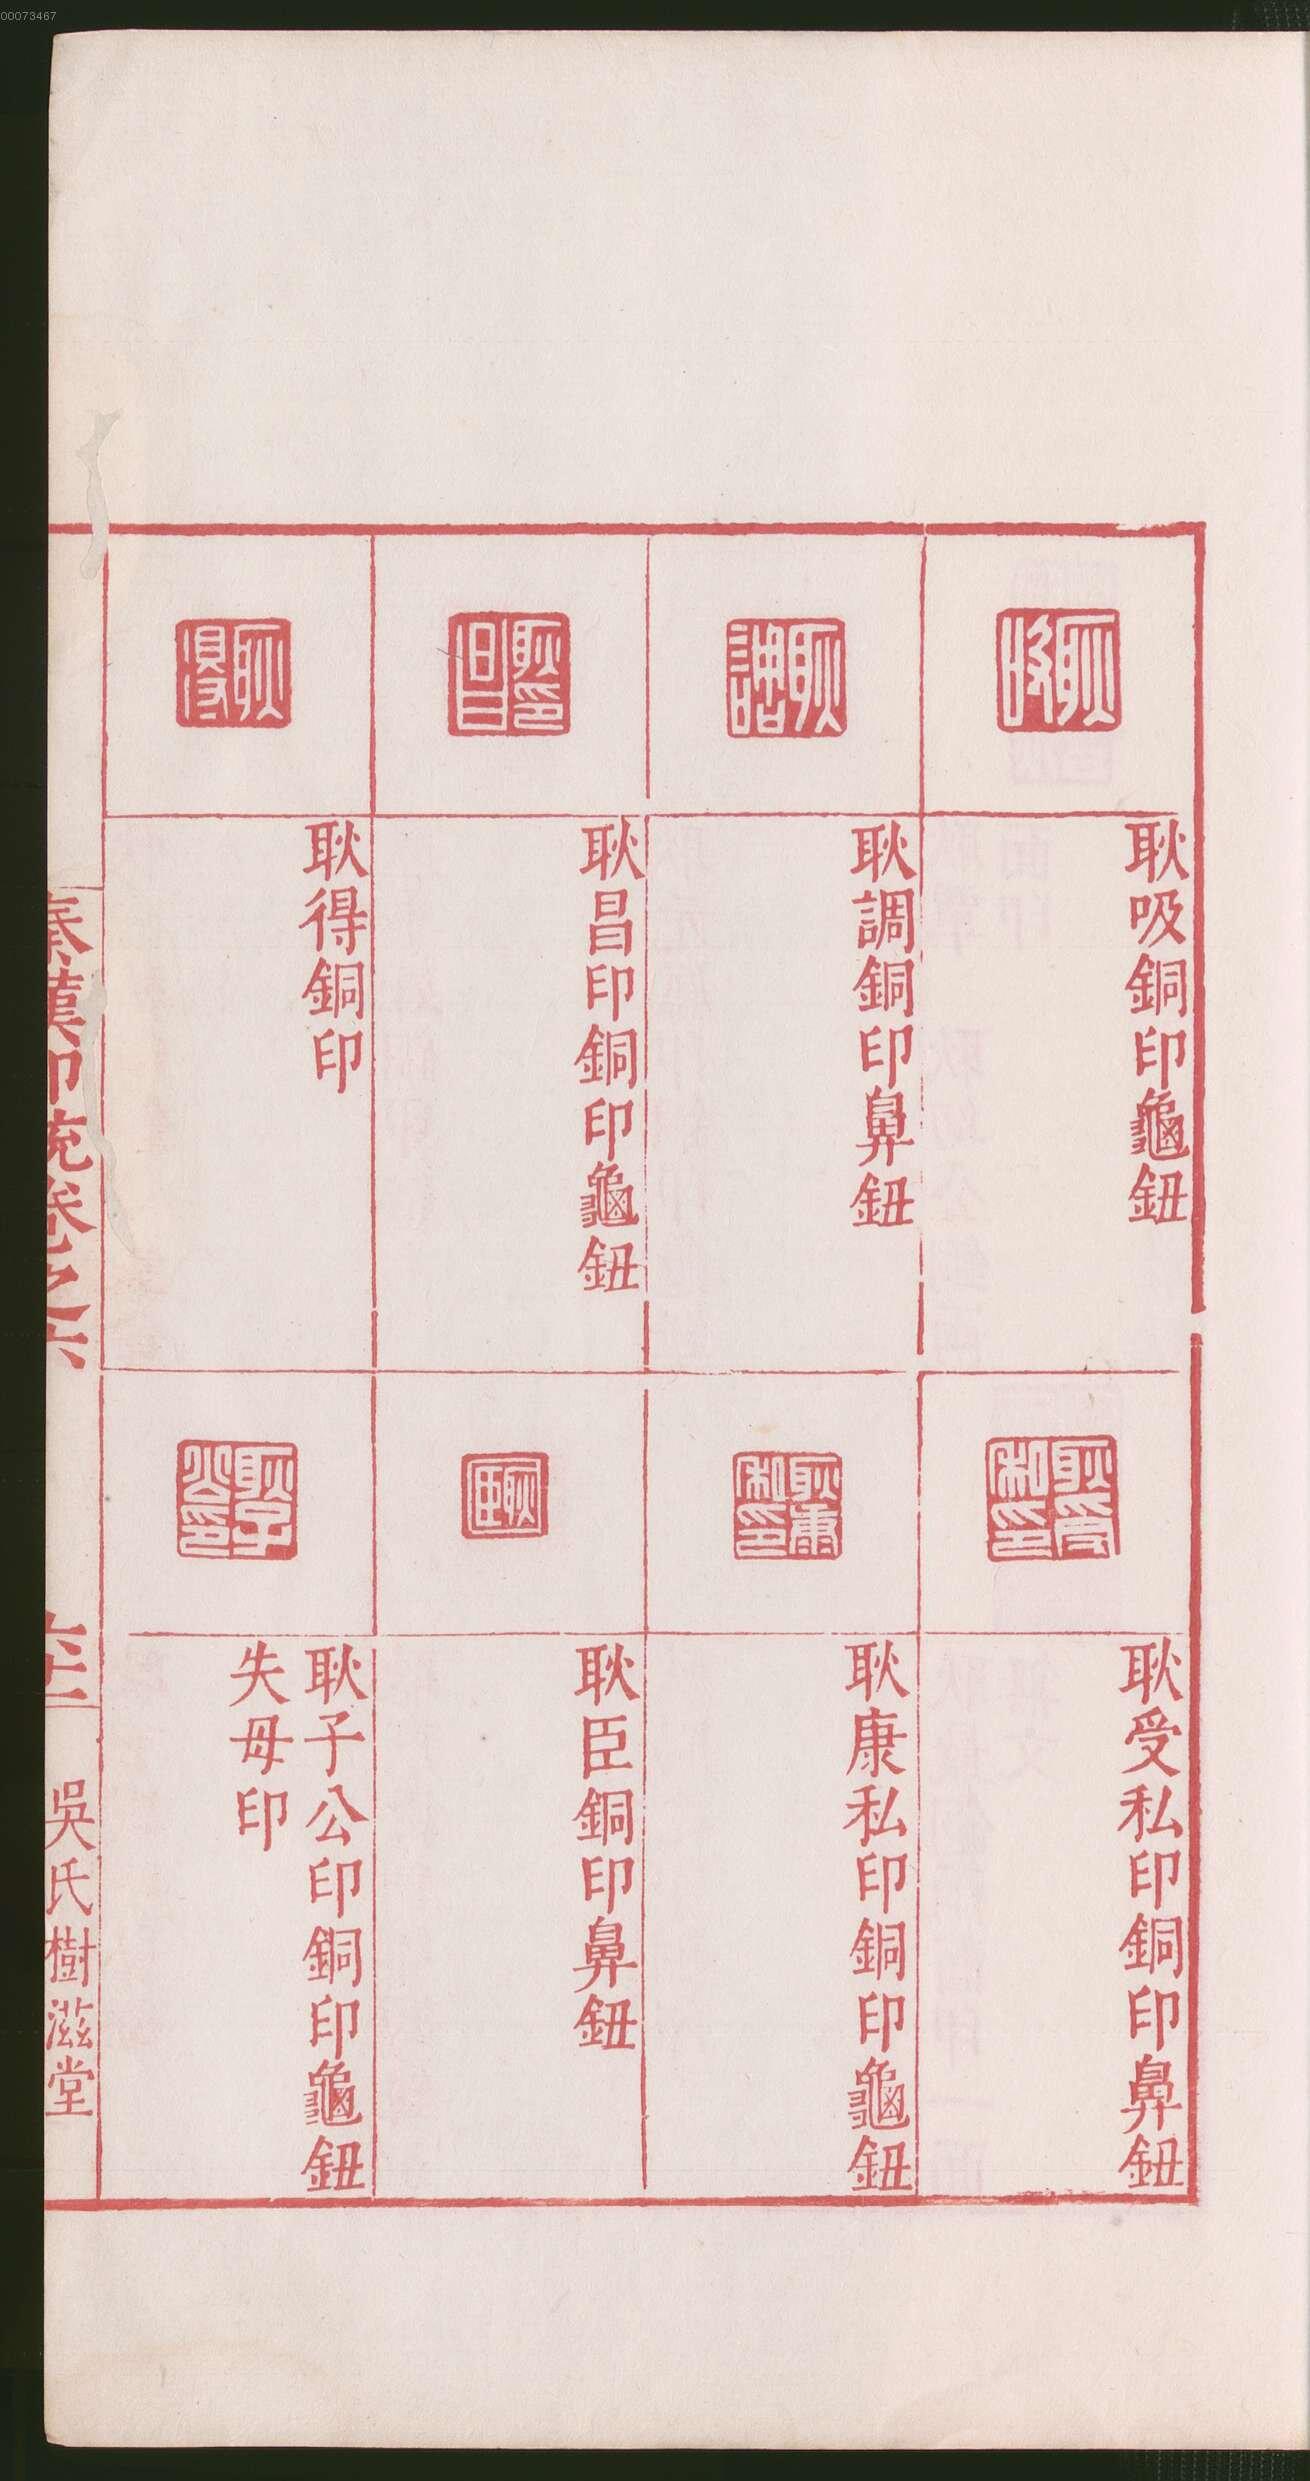 00073467
耿吸銅印龜鈕
耿調銅印鼻鈕
耿昌印銅印龜鈕
耿得銅印
耿受私印銅印鼻鈕
耿康私印銅印龜鈕
耿臣銅印鼻鈕
耿子公印銅印龜鈕
失母印
秦漢印統卷之六
吳氏樹滋堂